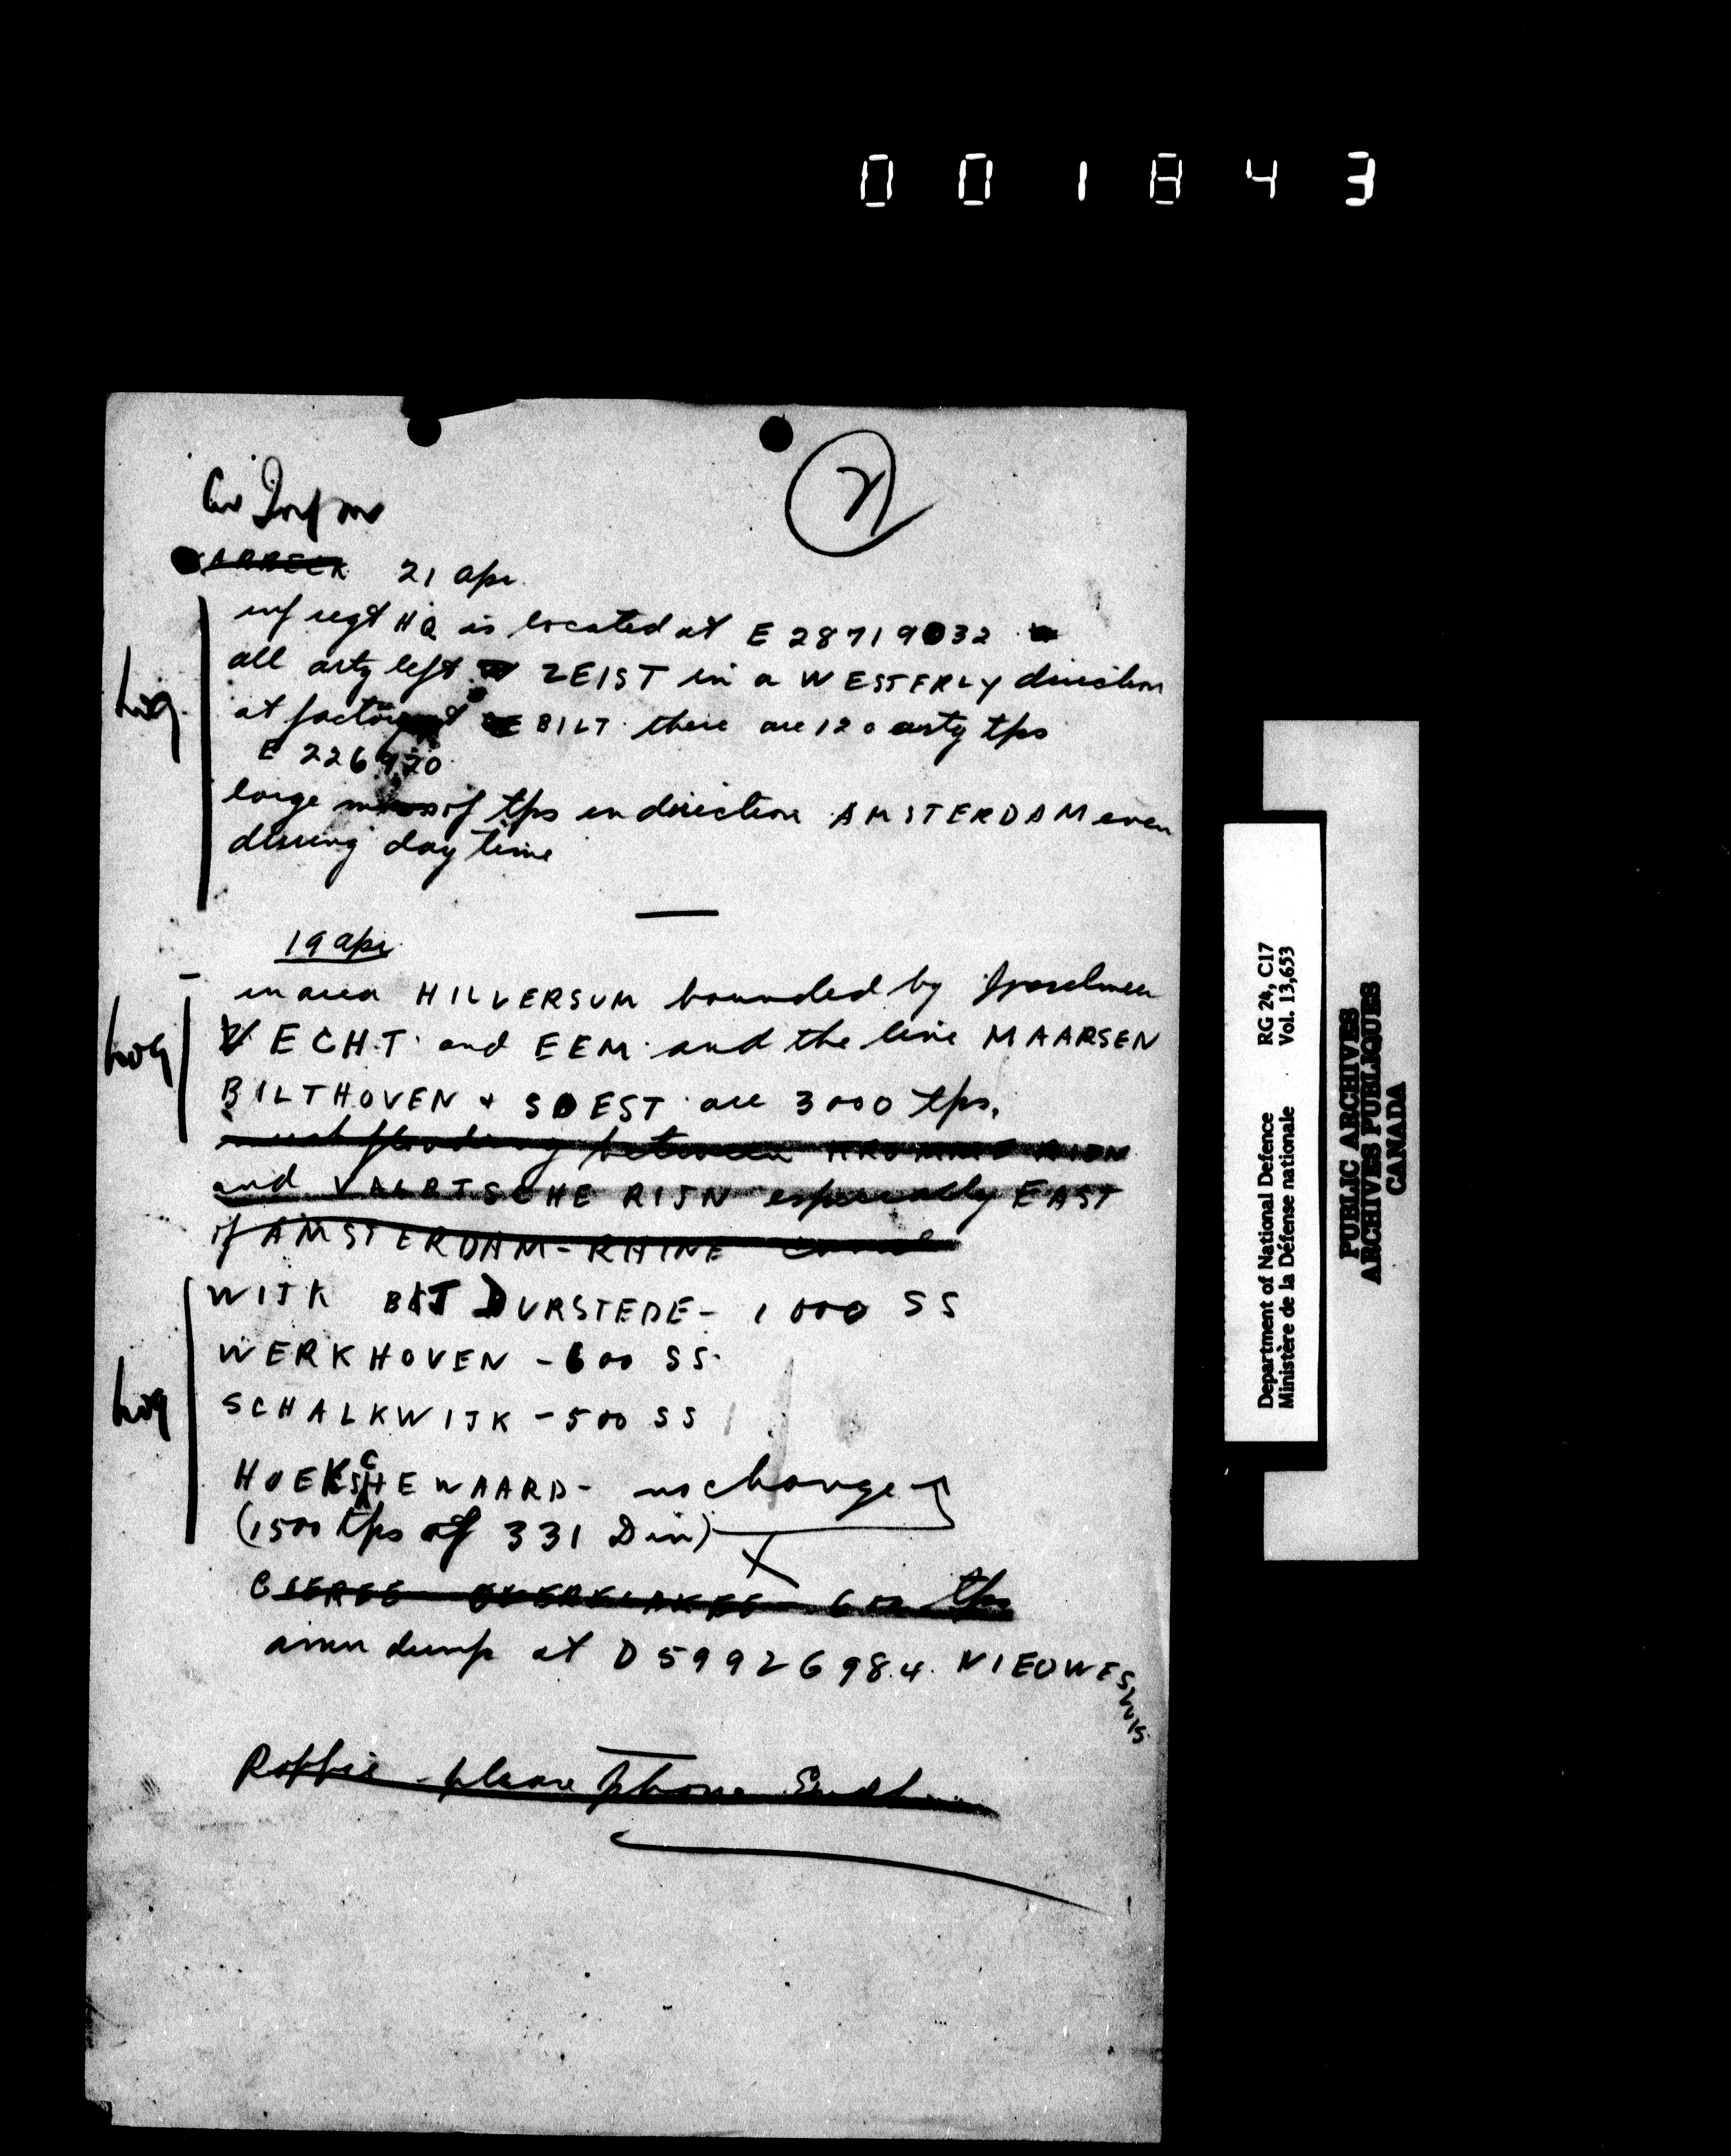 001843
2
21 apr.
inf regt HQ is located at E 28719032
all arty left ZEIST in a WESTERLY direction
at factory BILT there are 120 arty tps
E 226920
large of tps in direction AMSTERDAM even
during day time
Log
19 apr.
in area HILVERSUM bounded by
VECHT and EEM and the line MAARSEN
BILTHOVEN + SOEST are 3000 tps.
Log
much flooding between KROMME RIJN
and VAARTSCHE RIJN especially EAST
of AMSTERDAM-RHINE canal
WIJK BIJ DURSTEDE - 1000 SS
WERKHOVEN - 600 SS
SCHALKWIJK - 500 SS
Log
HOEKSCHE WAARD - no change
(1500 tps of 331 Div)
OVERFLAKEE 600 tps
amn dump at D 59926984 NIEUWESLUIS
Robbie - please phone
Department of National Defence RG 24, C17
Ministère de la Défense nationale Vol. 13,653
PUBLIC ARCHIVES
ARCHIVES PUBLIQUES
CANADA